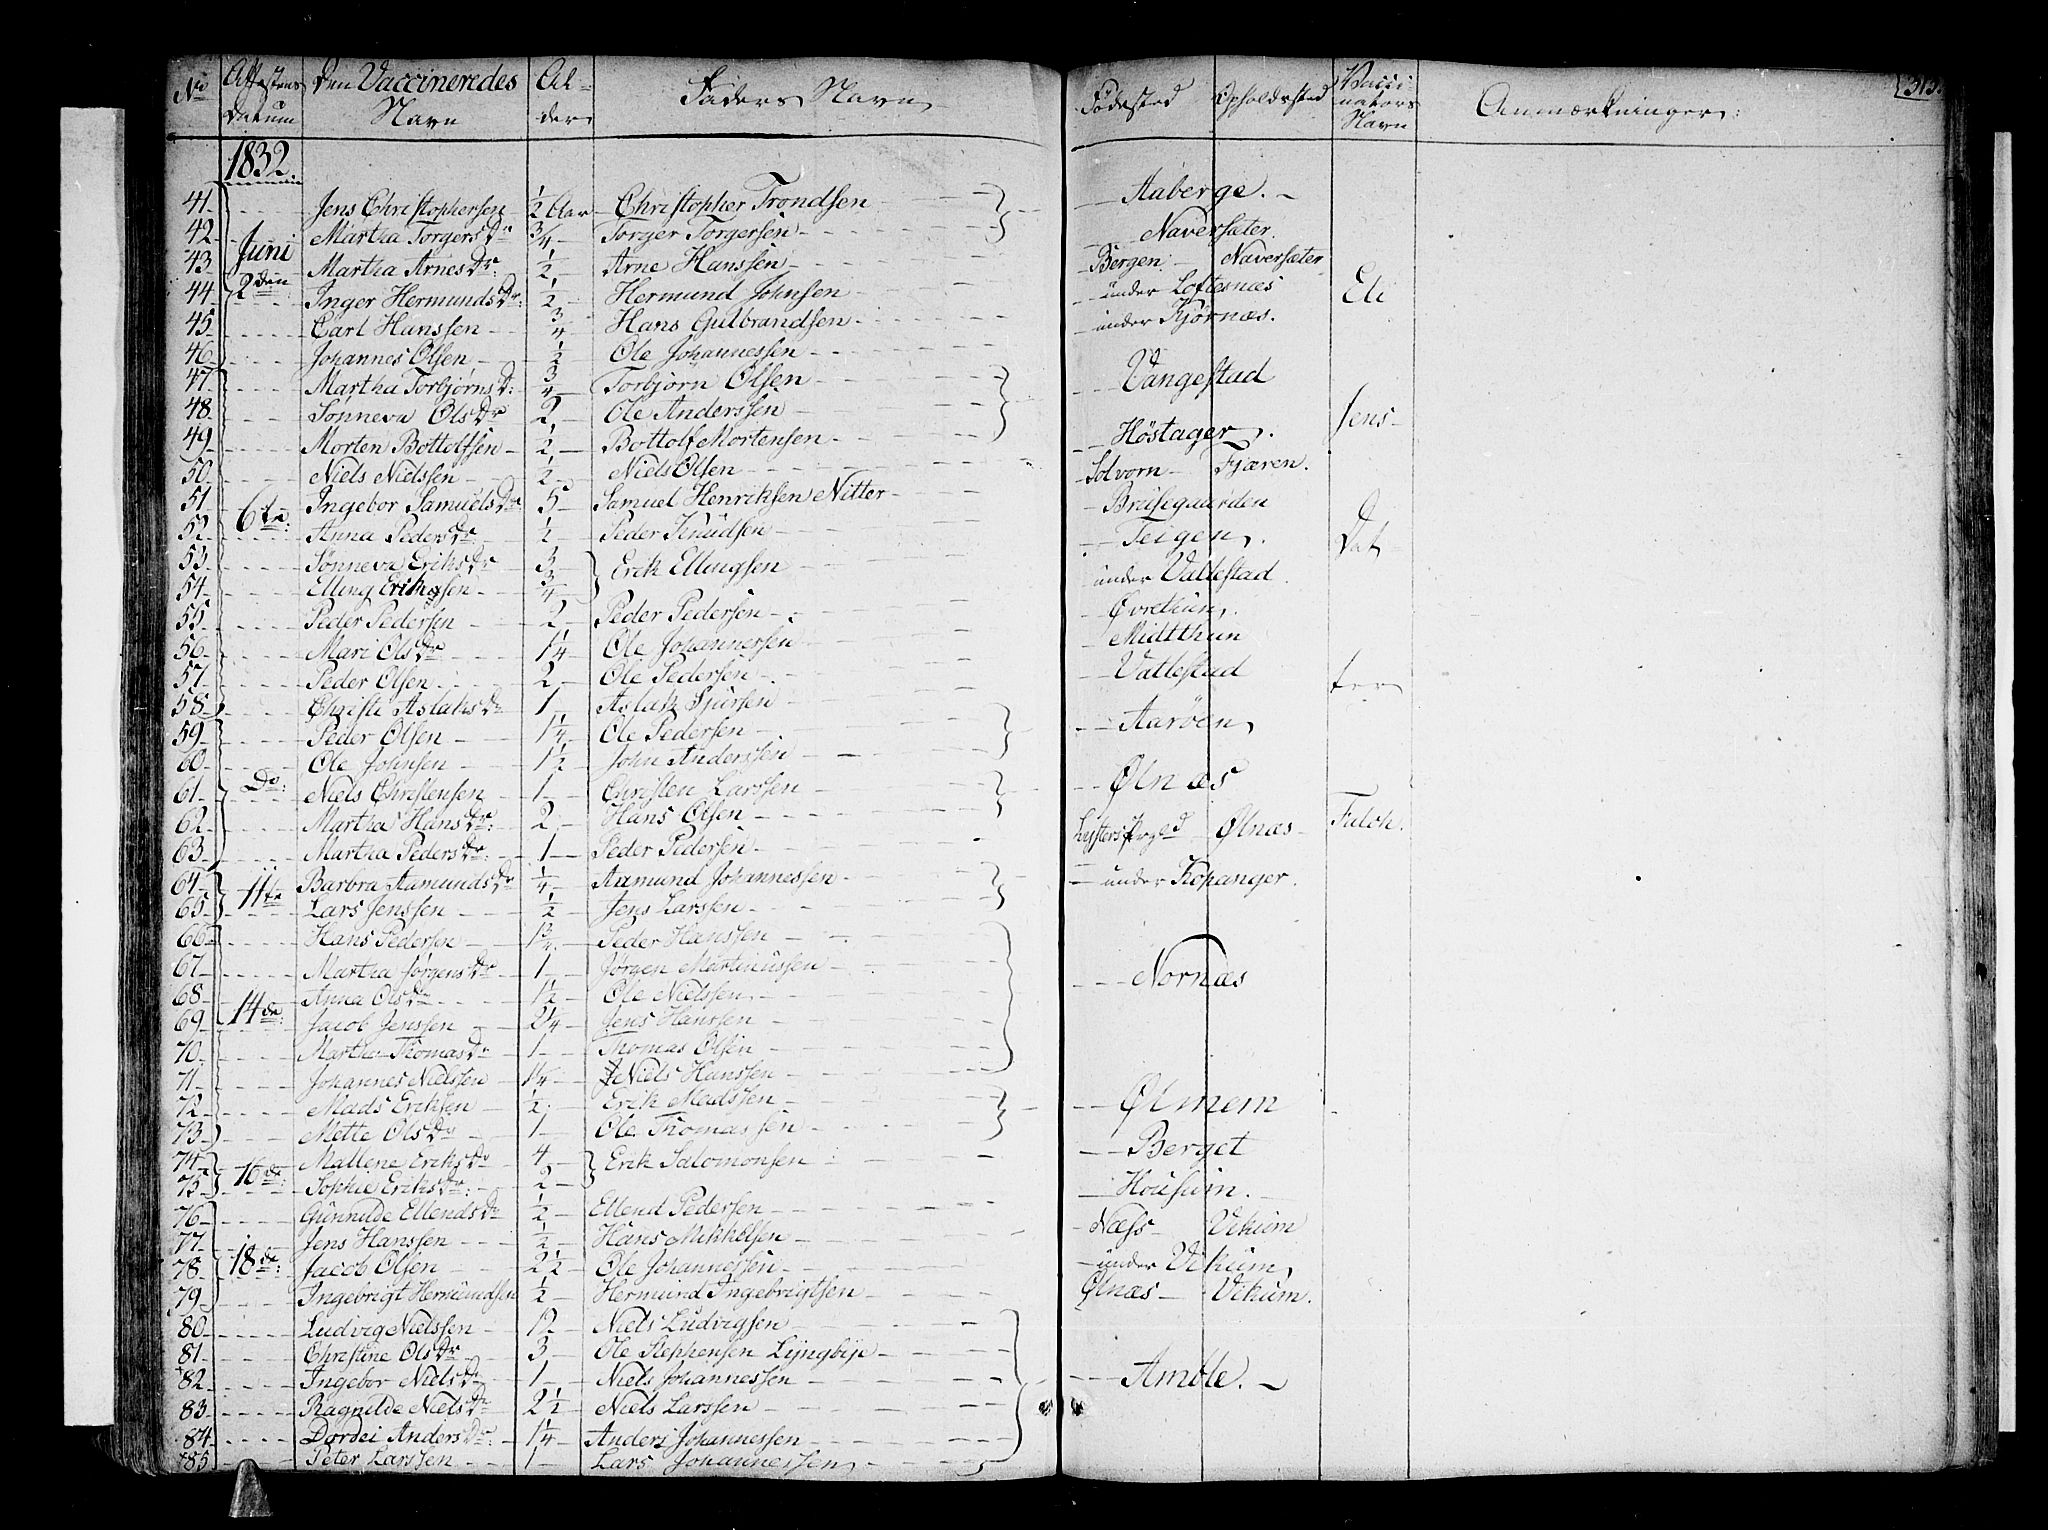 No Attestens Datum Den Vaccineredes Navn Alder Faders Navn Fødested Opholdssted Vaccinateurs Navn Anmærkninger: 313.
1832
41 Jens Christophersen ½ Aar Christopher Trondsen Aaberge.
42 Juni Martha Torgers Dr ¾ Torger Torgersen
43 Martha Arnes Dr: ½ Arne Hanssen Bergen. Naversæter
Naversæter.
44 2den Inger Hermunds Dr ½ Hermund Johnsen under Loftesnæs
45 Carl Hanssen ¾ Hans Gulbrandsen under Kjørnæs.
46 Johannes Olsen ½ Ole Johannessen
47 Martha Torbjørns Dr: ¾ Torbjørn Olsen Vangestad
48 Sønneva Ols Dr 2 Ole Anderssen
49 Morten Bottolfsen ½ Bottolf Mortensen Høstager.
50 Niels Nielssen ½ Niels Olsen Solvorn Fjæren.
51 Ingebor Samuels Dr 5 Samuel Henriksen Nitter Brusegaarden
52 6te: Anna Peders Dr ½ Peder Knudsen Teigen.
53 Sønneva Eriks Dr 3 Erik Ellingsen under Vallestad
54 Elling Eriksen ¾
55 Peder Pedersen 2 Peder Pedersen Øvrethun.
56 Mari Ols Dr 1¼ Ole Johannessen Midtthun
57 Peder Olsen 2 Ole Pedersen Vallestad
58 Christi Aslaks Dr 1 Aslak Sjursen
59 Peder Olsen 1¼ Ole Pedersen Aarøen
60 Ole Johnsen 1½ John Anderssen
61 Do: Niels Christensen 1 Christen Larssen Ølnæs
62 Martha Hans Dr: 2 Hans Olsen
63 Martha Peders Dr: 1 Peder Pedersen Lysters Prgd Ølnæs Falch.
64 11te Barbra Aamunds Dr ¼ Aamund Johannessen under Kopanger.
65 Lars Jenssen ½ Jens Larssen
66 Hans Pedersen 1¾ Peder Hanssen
67 Martha Jørgens Dr 1 Jørgen Martinussen Nornæs
68 Anna Ols Dr 1½ Ole Nielssen
69 14de: Jacob Jenssen 2¼ Jens Hanssen
70 Martha Thomas Dr 1 Thomas Olsen
71 Johannes Nielssen 1¼ Niels Hanssen
72 Mads Eriksen ½ Erik Madssen Ølmem
73 Mette Ols Dr 1 Ole Thomassen
74 Mallene Eriks Dr 4 Erik Salomonsen Berget
75 16de: Sophie Eriks Dr: 2
76 Gunnilde Ellends Dr ½ Ellend Pedersen Housum.
77 Jens Hanssen ½ Hans Mikkelsen Næss Vikum
78 18de: Jacob Olsen 2½ Ole Johannessen under Vikum
79 Ingebrigt Hermundsen ½ Hermund Ingebrigtsen Ølnæs Vikum.
80 Ludvig Nielssen 12 Niels Ludvigsen
81 Christine Ols Dr 3 Ole Stephensen Lyngbye
82 Ingebor Niels Dr 1 Niels Johannessen Amble.
83 Ragnilde Niels Dr 2½ Niels Larssen
84 Dordei Anders Dr: 1¼ Anders Johannessen
85 Peter Larssen 1 Lars Johannessen